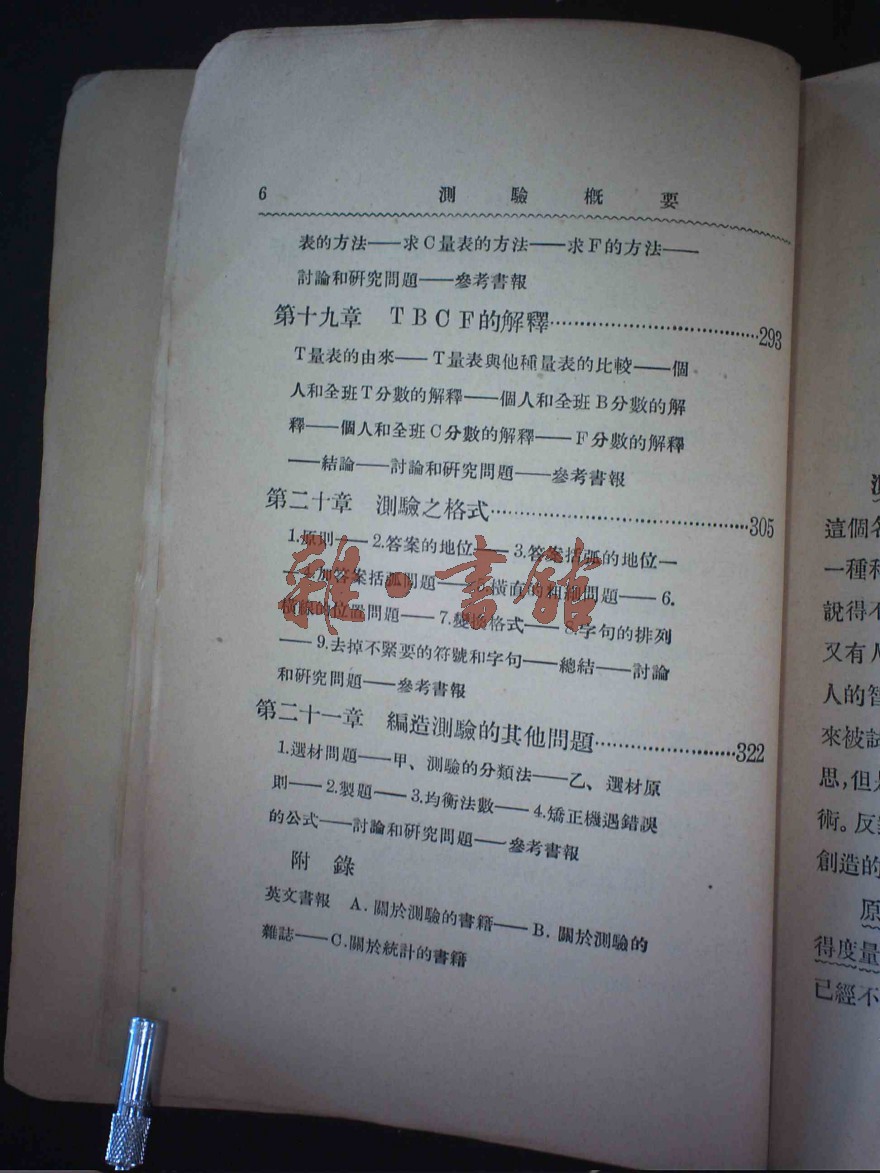 6 測驗概要
表的方法——求C量表的方法——求F的方法——
討論和研究問題——參考書報
第十九章 TBCF的解釋……………………293
T量表的由來——T量表與他種量表的比較——個
人和全班T分數的解釋——個人和全班B分數的解
釋——個人和全班C分數的解釋——F分數的解釋
——結論——討論和研究問題——參考書報
第二十章 測驗之格式……………………305
1.原則——2.答案的地位——3.答案括弧的地位—
—4.加答案括弧問題——5.橫直的粗細問題——6.
橫線的位置問題——7.變換格式——8.字句的排列
——9.去掉不緊要的符號和字句——總結——討論
和研究問題——參考書報
第二十一章 編造測驗的其他問題……………322
1.選材問題——甲、測驗的分類法——乙、選材原
則——2.製題——3.均衡法數——4.矯正機遇錯誤
的公式——討論和研究問題——參考書報
附錄
英文書報 A.關於測驗的書籍——B.關於測驗的
雜誌——C.關於統計的書籍
雜·書館
這個
一種
說得不
又有
人的智
來被試
思,但
術。反
創造的
原
得度量
已經不